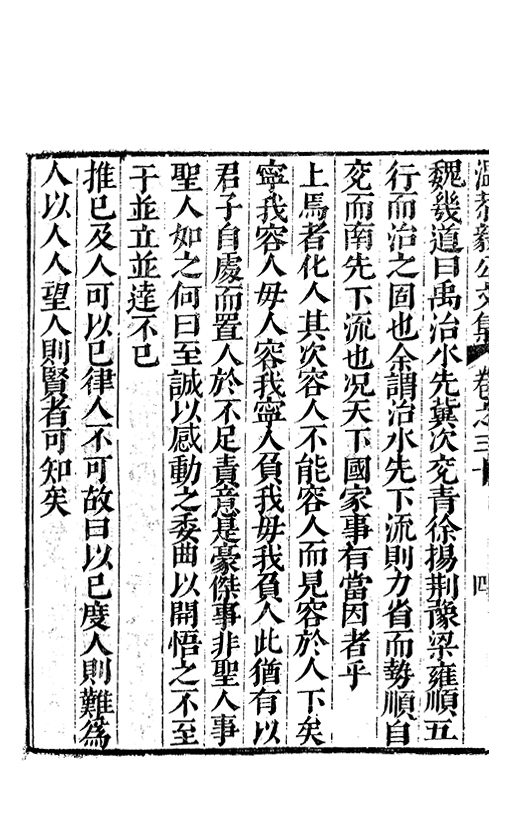 溫恭毅公文集 卷之三十 四
魏幾道曰禹治水先冀次兗青徐揚荆豫梁雍順五
行而治之固也余謂治水先下流則力省而勢順自
兗而南先下流也况天下國家事有當因者乎
上焉者化人其次容人不能容人而見容於人下矣
寧我容人毋人容我寧人負我毋我負人此猶有以
君子自處而置人於不足責意是豪傑事非聖人事
聖人如之何曰至誠以感動之委曲以開悟之不至
于並立並達不已
推已及人可以已律人不可故曰以已度人則難爲
人以人人望人則賢者可知矣